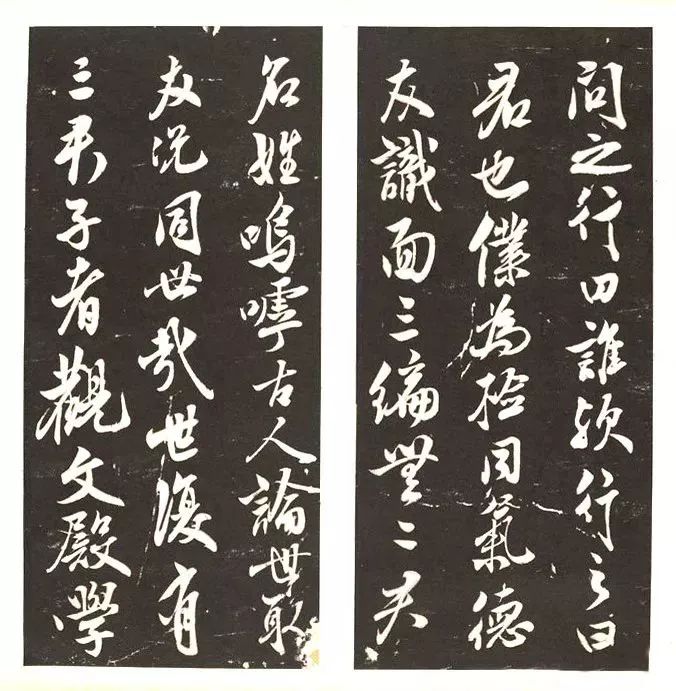 問之行田誰歟行之曰
君也僕為拾同氣德
友識面三編無二夫
名姓嗚嘑古人論世取
友況同世哉世復有
三夫子者觀文殿學